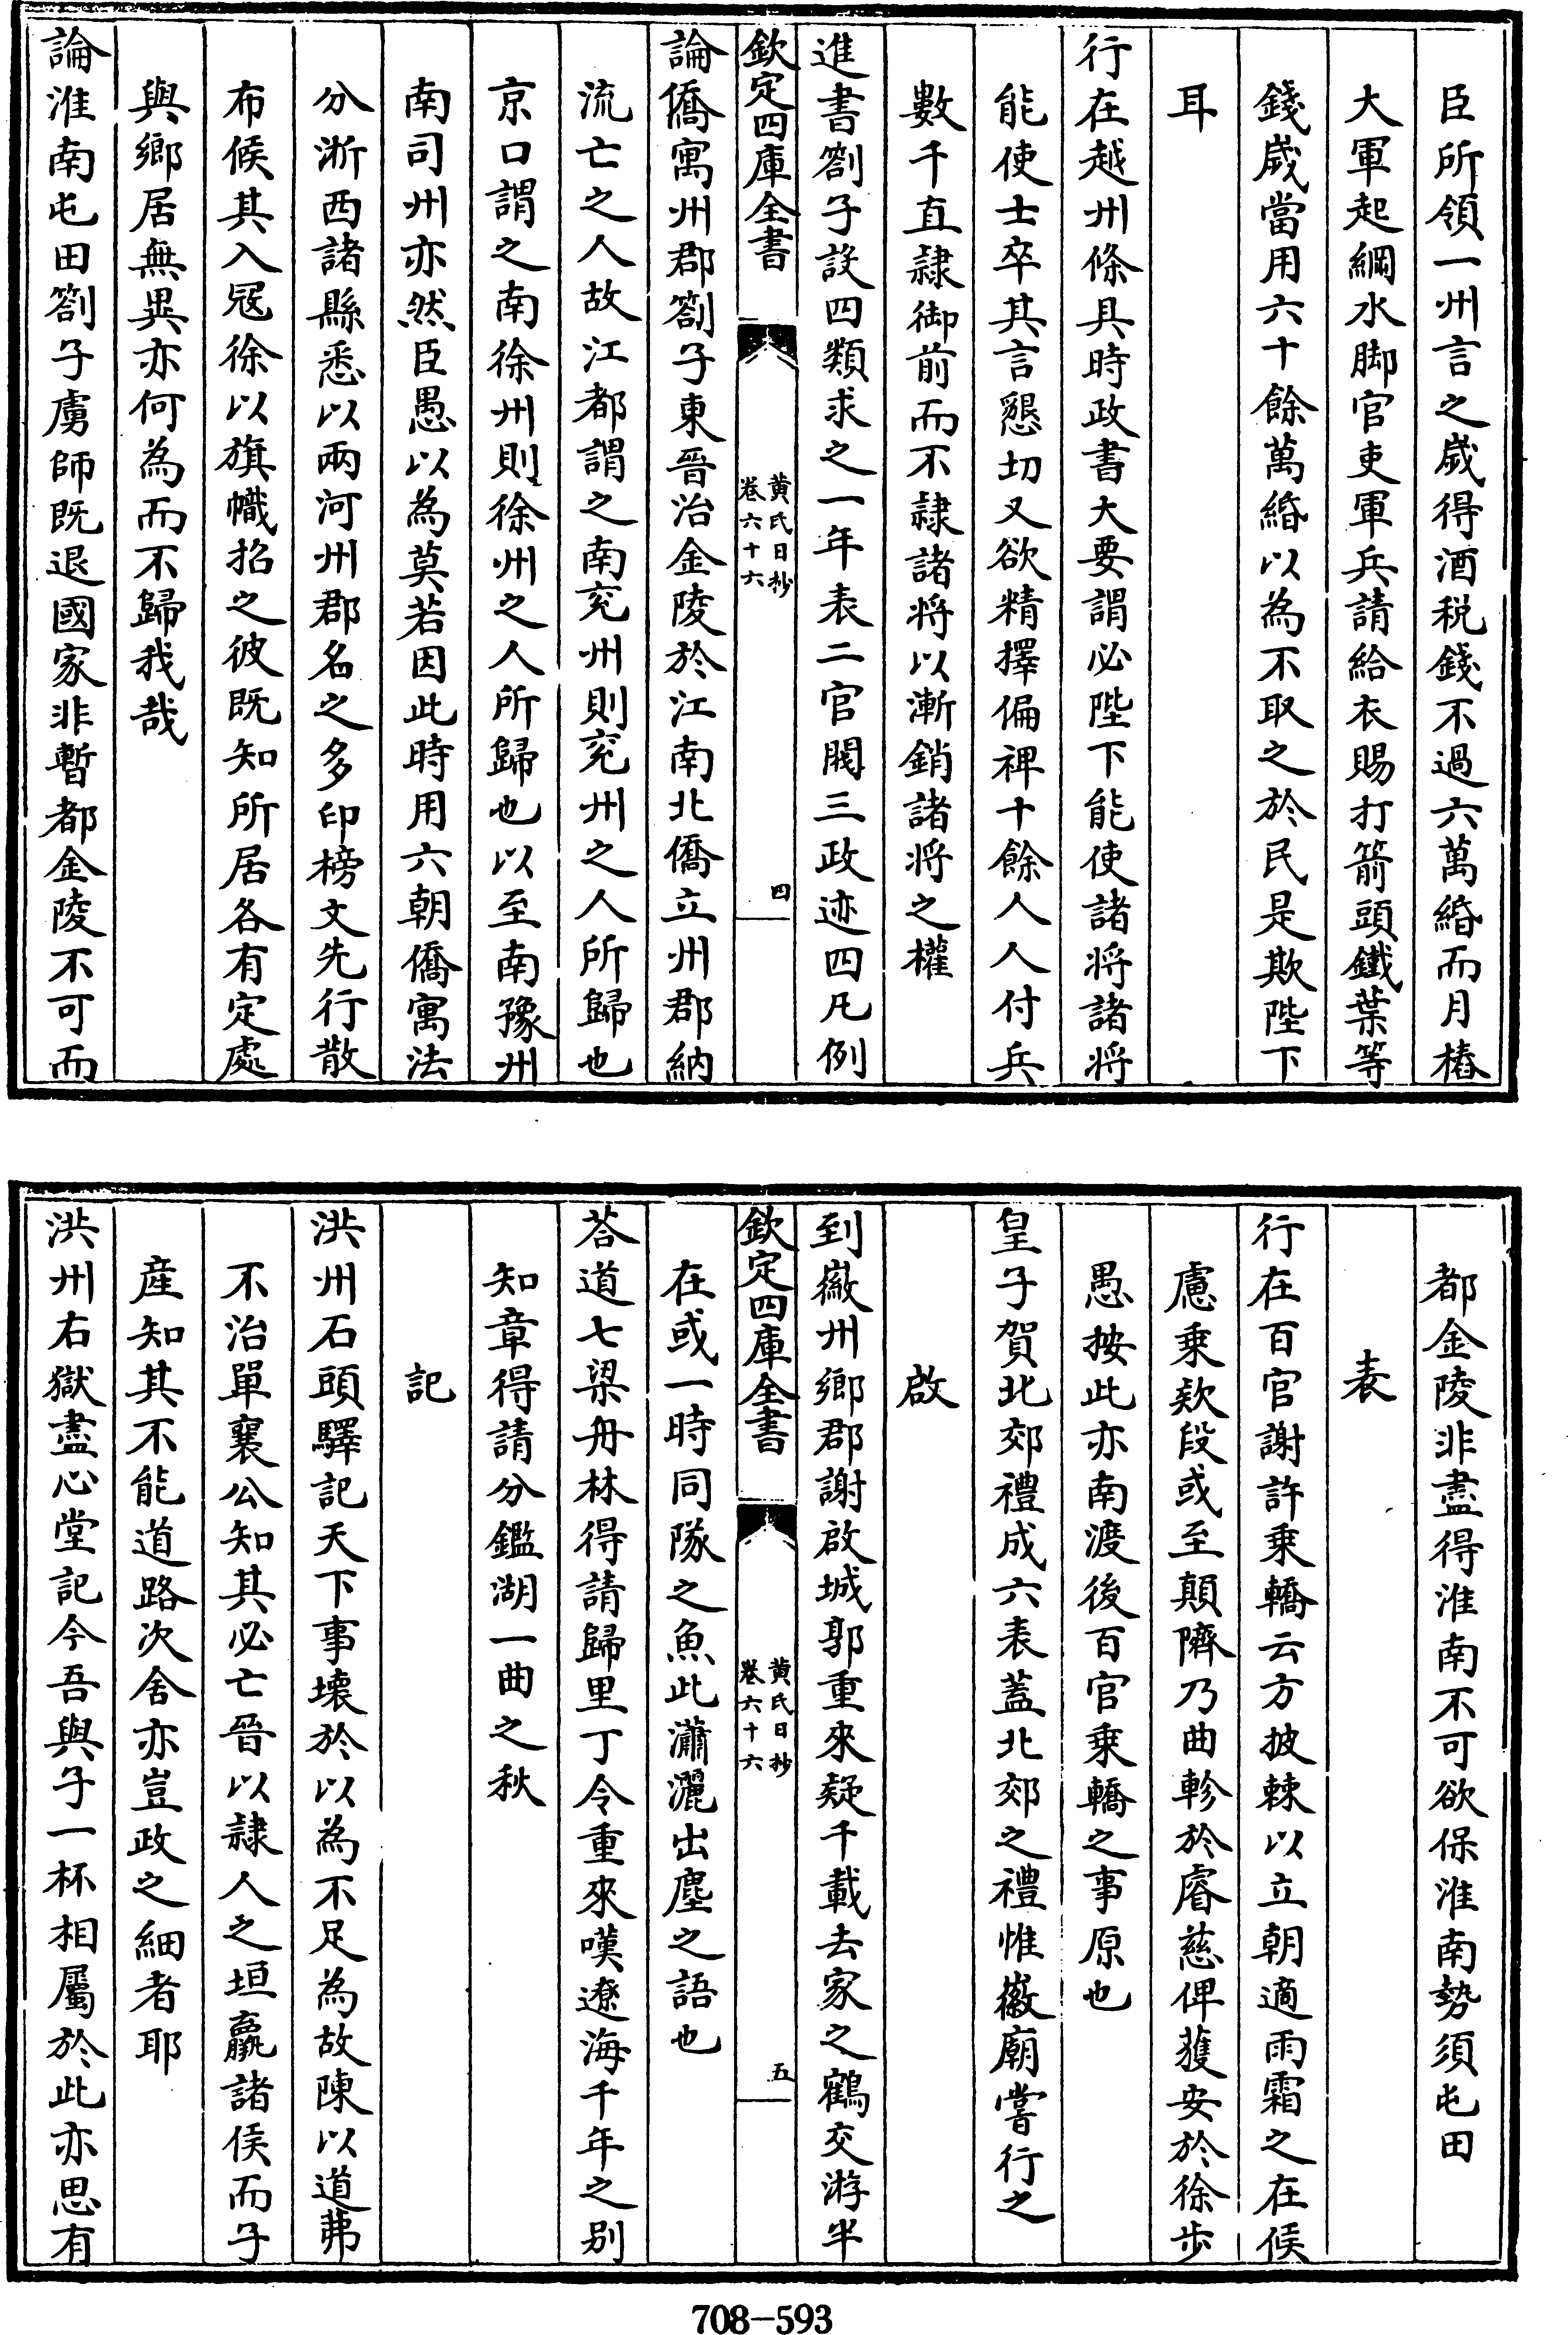 臣所領一州言之歲得酒税錢不過六萬緡而月樁
大軍起綱水脚官吏軍兵請給衣賜打箭頭鐵葉等
錢歲當用六十餘萬緡以為不取之於民是欺陛下
耳
行在越州條具時政書大要謂必陛下能使諸將諸將
能使士卒其言懇切又欲精擇偏裨十餘人人付兵
數千直隷御前而不隷諸將以漸銷諸將之權
進書劄子設四類求之一年表二官閥三政迹四凡例
欽定四庫全書
黄氏日抄
卷六十六
四
論僑寓州郡劄子東晉治金陵於江南北僑立州郡納
流亡之人故江都謂之南兖州則兖州之人所歸也
京口謂之南徐州則徐州之人所歸也以至南豫州
南司州亦然臣愚以為莫若因此時用六朝僑寓法
分浙西諸縣悉以兩河州郡名之多印榜文先行散
布候其入冦徐以旗幟招之彼既知所居各有定處
與鄉居無異亦何為而不歸我哉
論淮南屯田劄子虜師既退國家非暫都金陵不可而
都金陵非盡得淮南不可欲保淮南勢須屯田
表
行在百官謝許乗轎云方披棘以立朝適雨霜之在候
慮乗欵段或至顛隮乃曲軫於睿慈俾獲安於徐步
愚按此亦南渡後百官乗轎之事原也
皇子賀北郊禮成六表蓋北郊之禮惟徽廟嘗行之
啟
到徽州鄉郡謝啟城郭重來疑千載去家之鶴交游半
欽定四庫全書
黄氏日抄
卷六十六
五
在或一時同隊之魚此瀟灑出塵之語也
荅道七梁舟林得請歸里丁令重來嘆遼海千年之别
知章得請分鑑湖一曲之秋
記
洪州石頭驛記天下事壊於以為不足為故陳以道茀
不治單襄公知其必亡晉以隷人之垣贏諸侯而子
産知其不能道路次舍亦豈政之細者耶
洪州右獄盡心堂記今吾與子一杯相屬於此亦思有
708-593